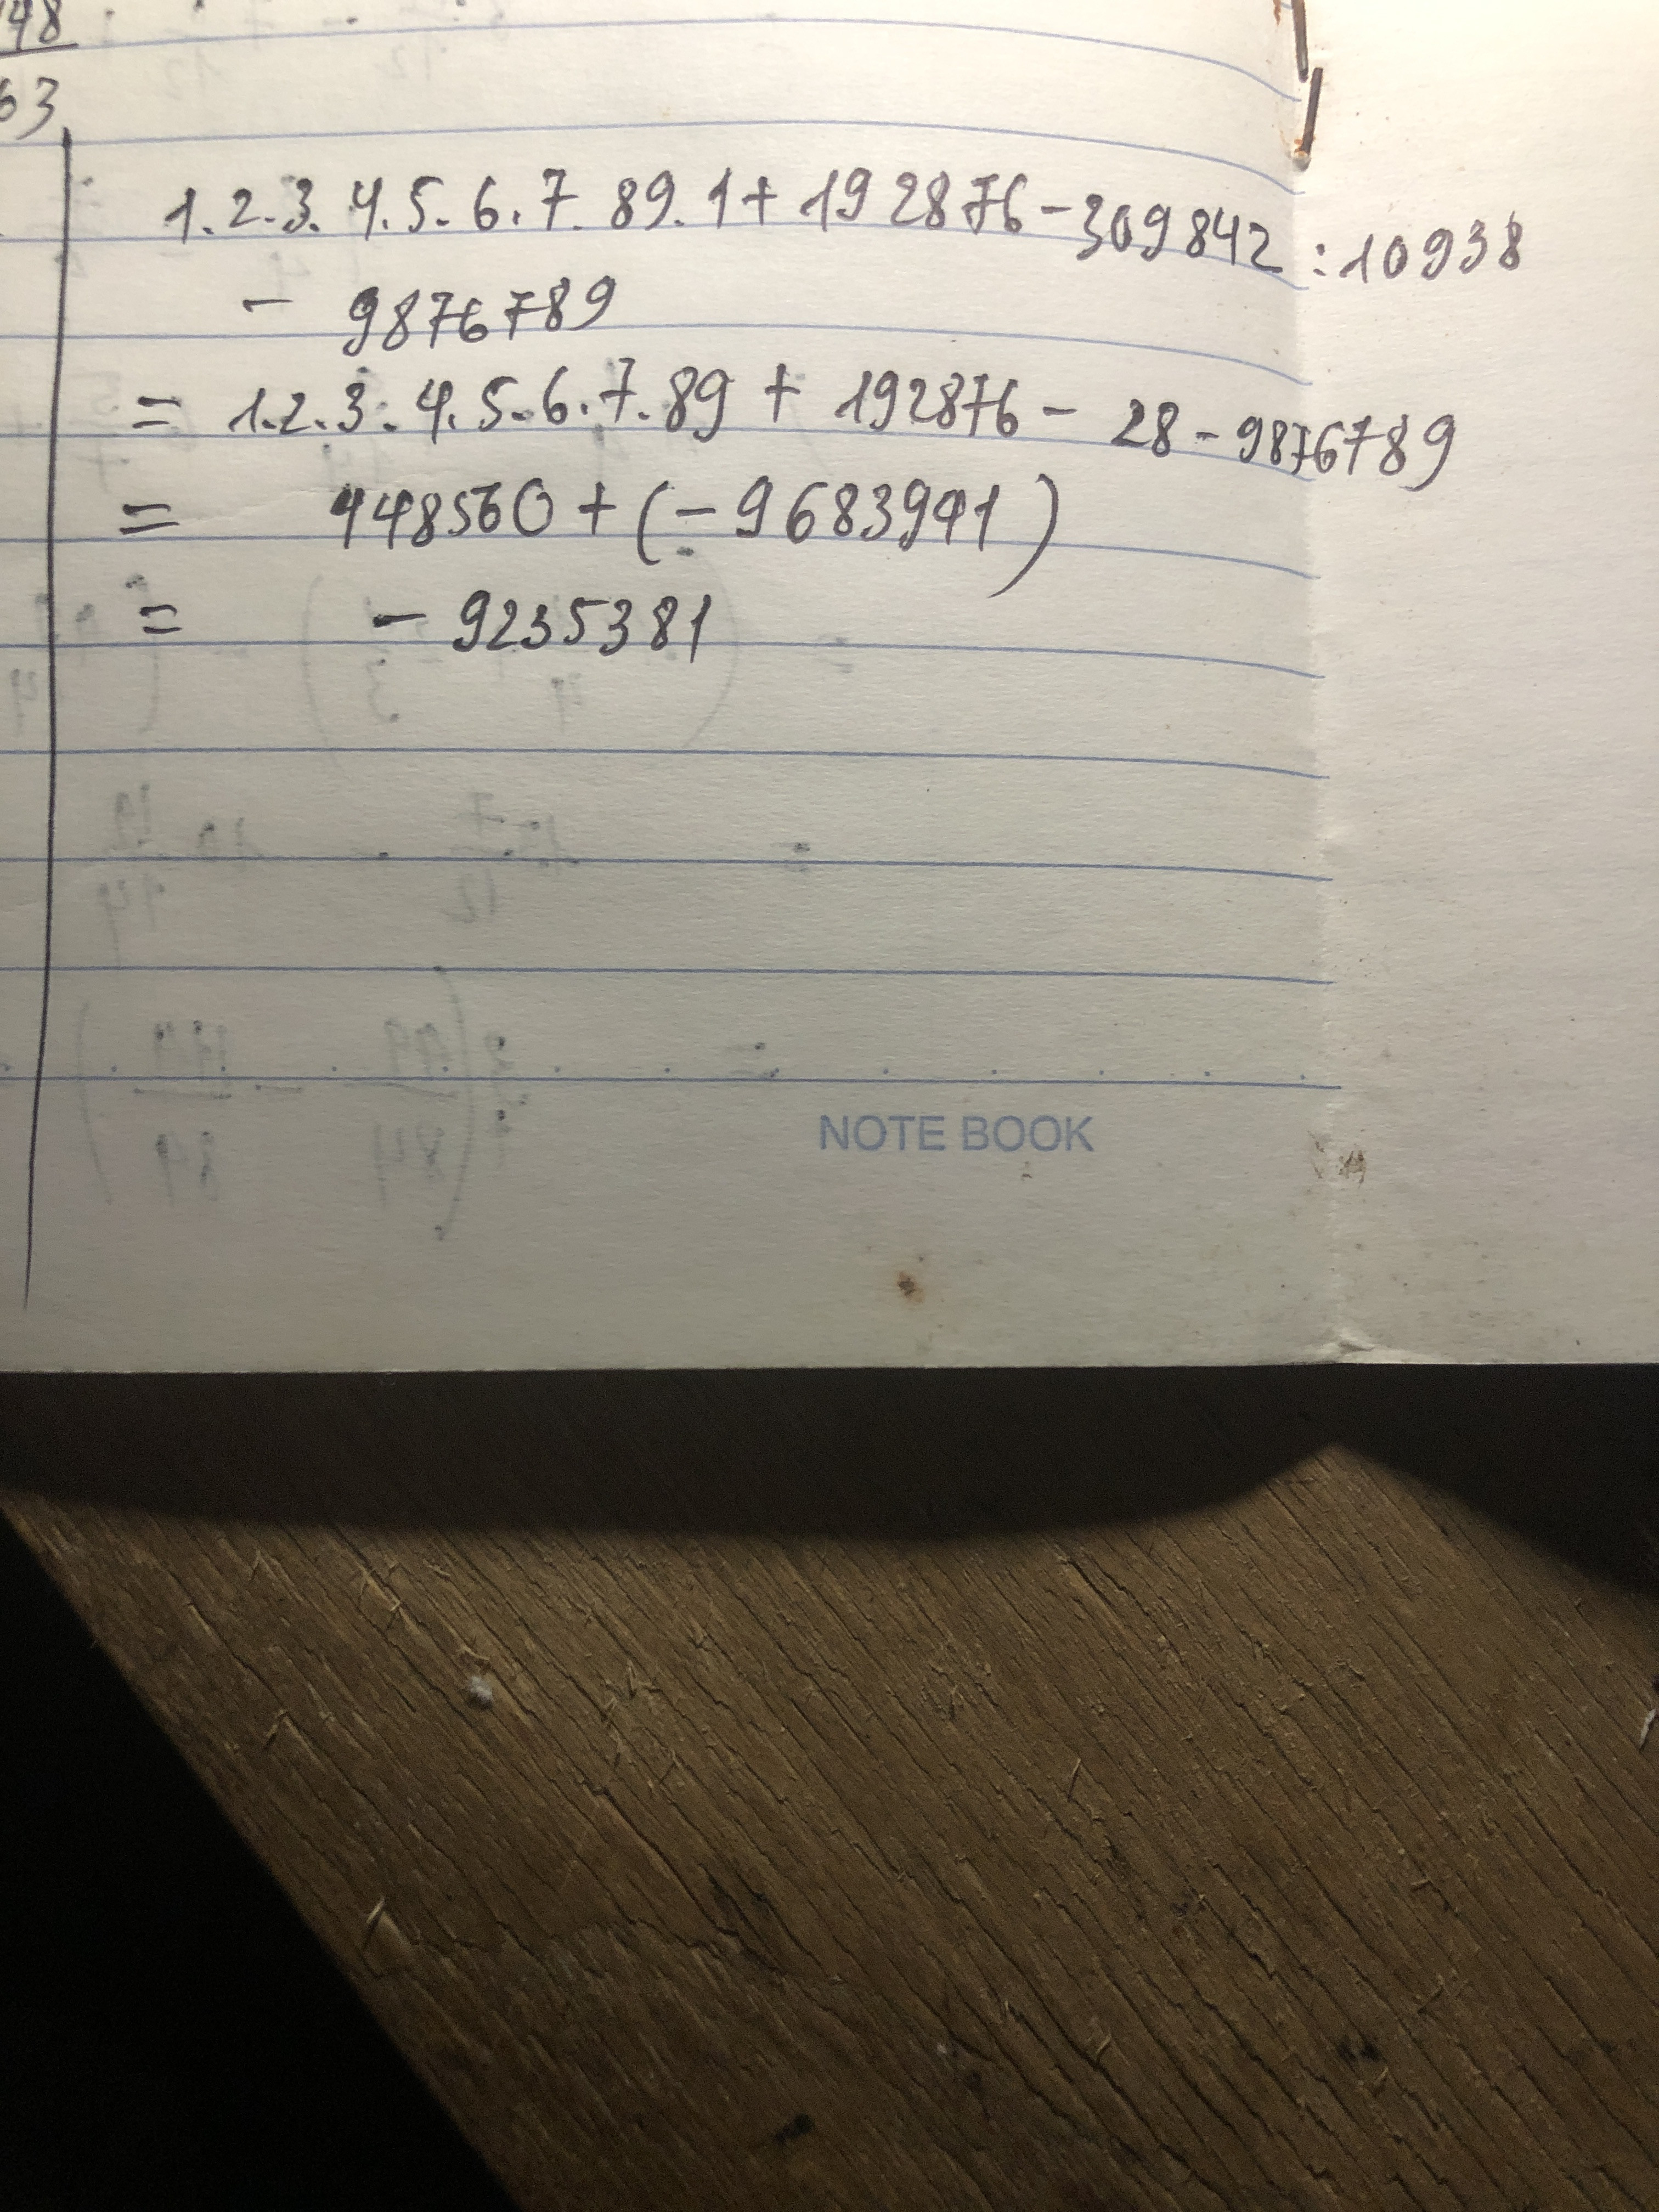 48
63
1.2.3.4.5.6.7.89.1+192876-309842:10938
- 9876789
= 1.2.3.4.5.6.7.89 + 192876 - 28 - 9876789
= 448560 + (-9683941)
= - 9235381
NOTE BOOK